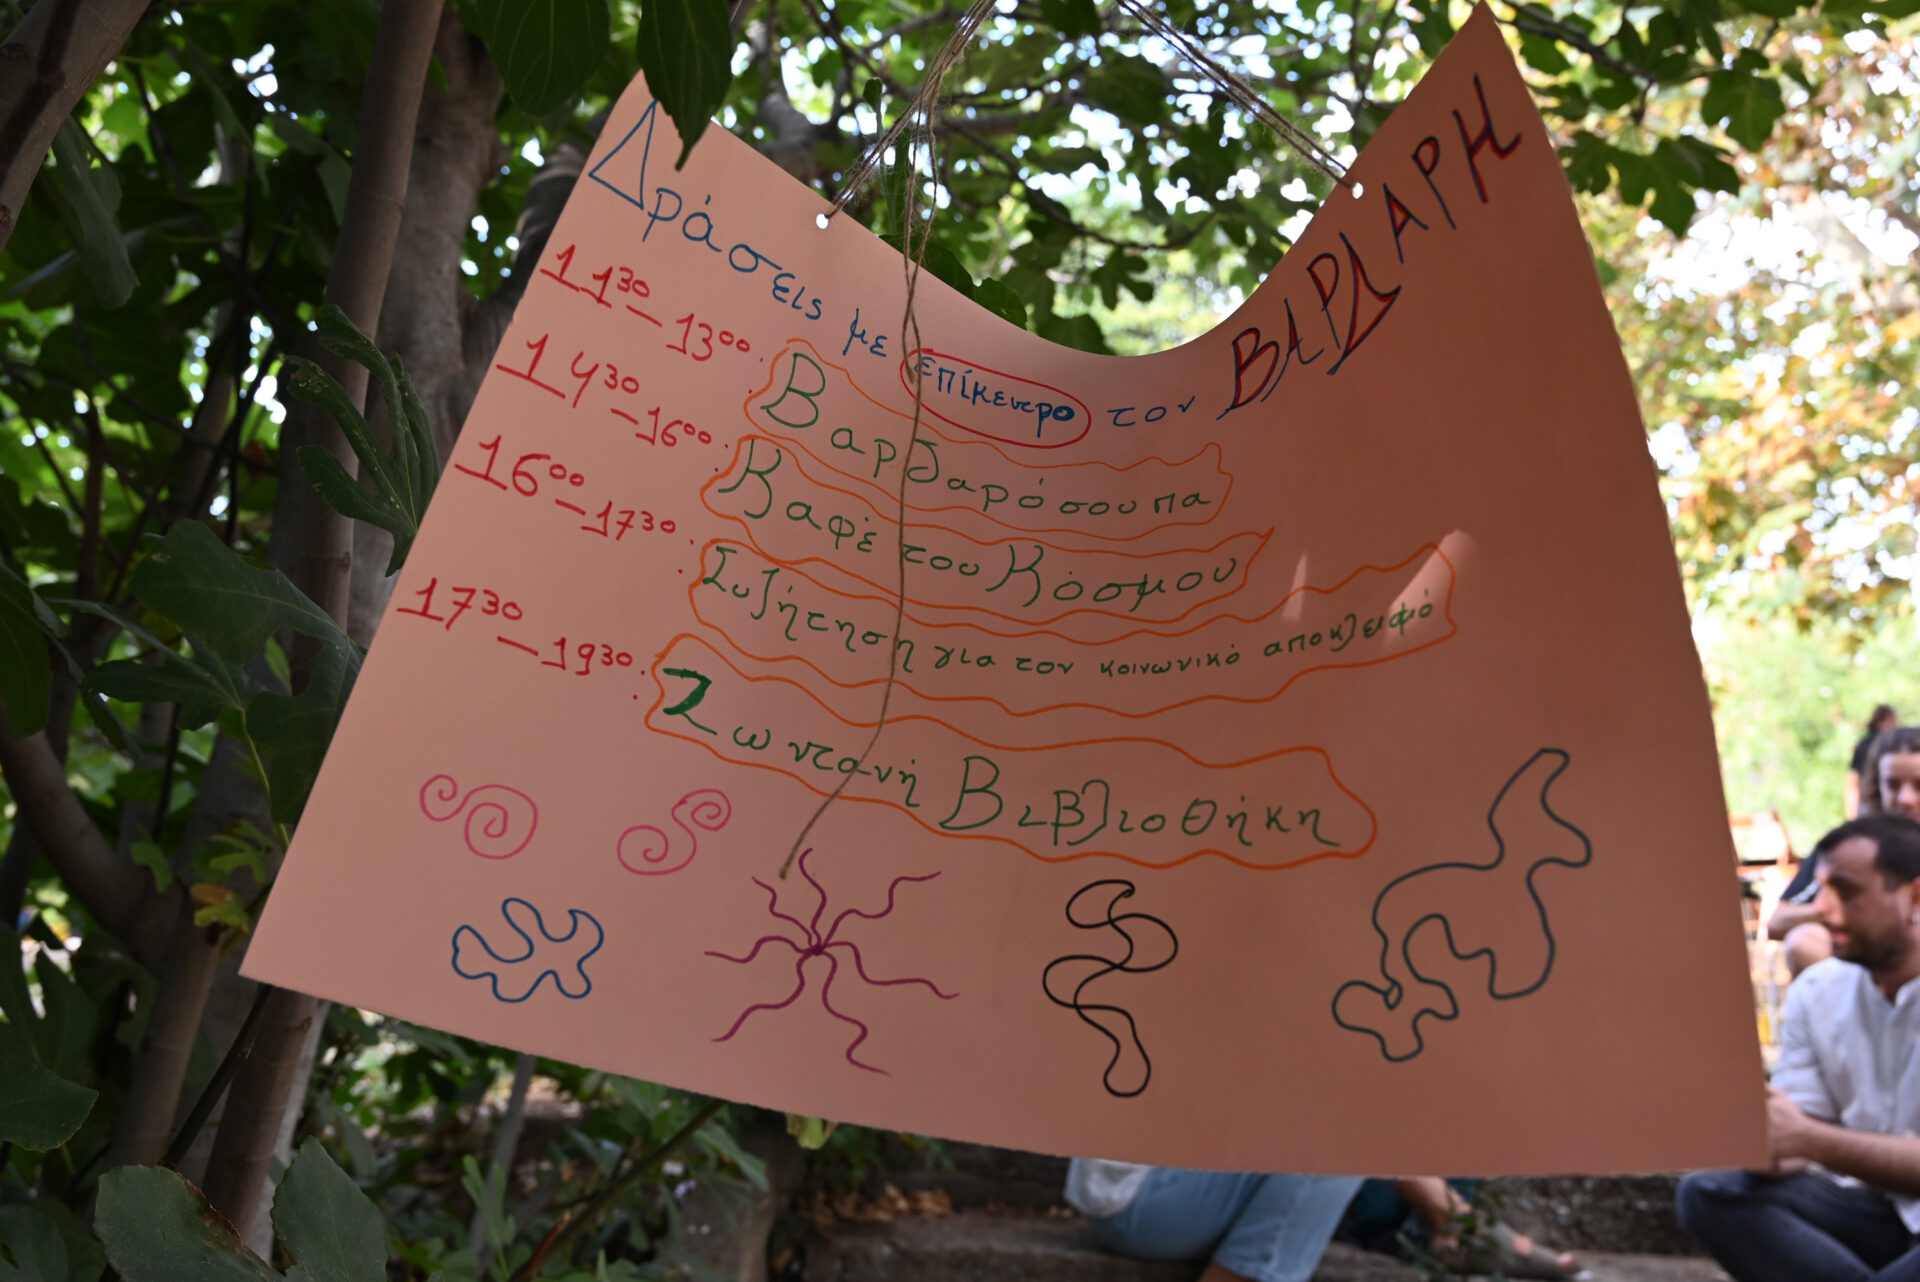 Δράσεις με επίκεντρο τον ΒΑΡΔΑΡΗ
11³⁰ – 13⁰⁰: Βαρδαρόσουπα
14³⁰ – 16⁰⁰: Καφέ του Κόσμου
16⁰⁰ – 17³⁰: Συζήτηση για τον κοινωνικό αποκλεισμό
17³⁰ – 19³⁰: Ζωντανή Βιβλιοθήκη